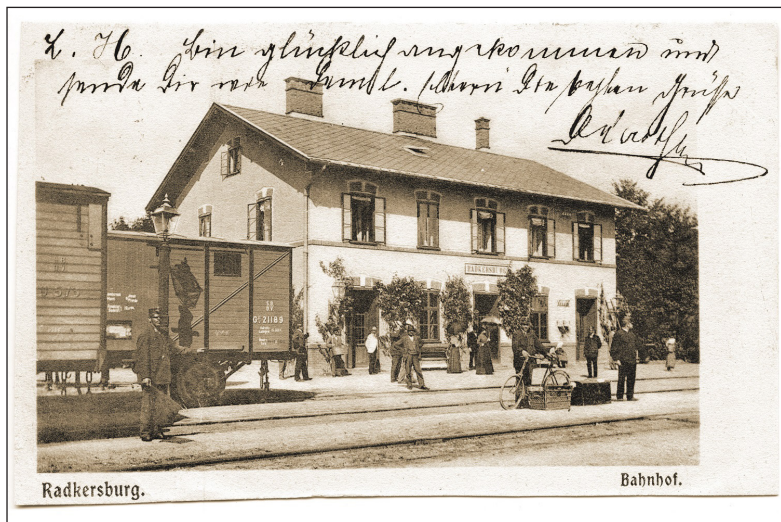 L. H. bin glücklich angekommen und
sende Dir wie Deml. Eltern die besten Grüße
RADKERSBURG
G 21189
Radkersburg.
Bahnhof.